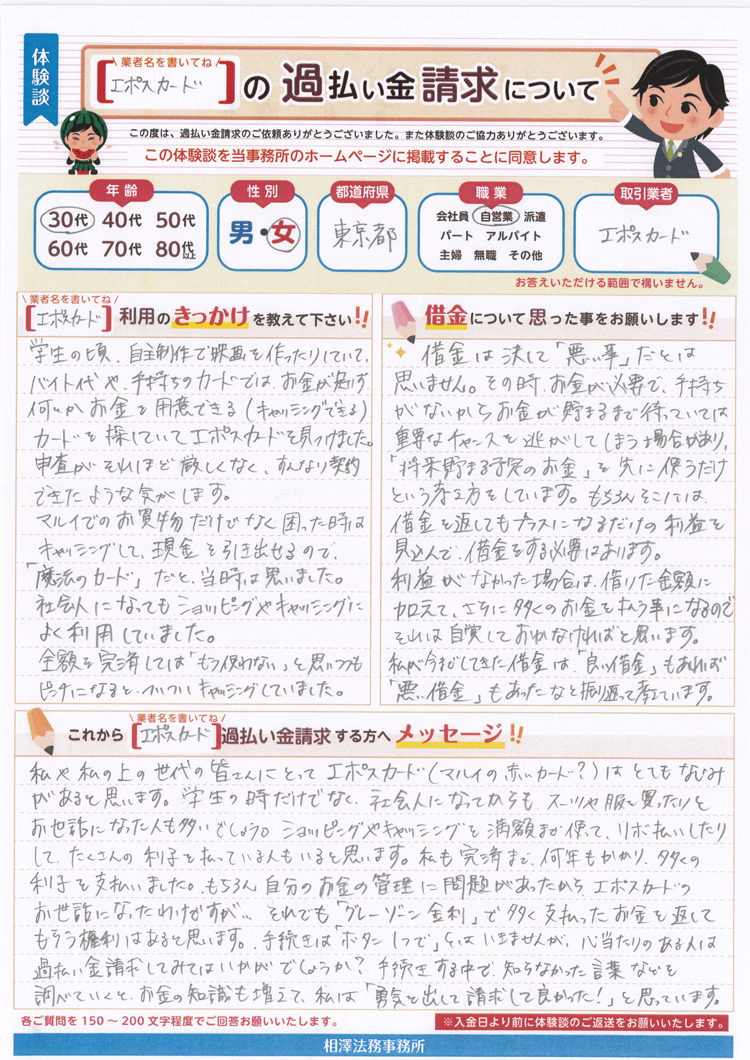 体験談
\ 業者名を書いてね /
[エポスカード]の過払い金請求について
この度は、過払い金請求のご依頼ありがとうございました。また体験談のご協力ありがとうございます。
この体験談を当事務所のホームページに掲載することに同意します。
年齢
30代 40代 50代
60代 70代 80代以上
性別
男・女
都道府県
東京都
職業
会社員 自営業 派遣
パート アルバイト
主婦 無職 その他
取引業者
エポスカード
お答えいただける範囲で構いません。
\ 業者名を書いてね /
[エポスカード]利用のきっかけを教えて下さい!!
学生の頃、自主制作で映画を作ったりしていて、
バイト代や、手持ちのカードでは、お金が足りず
何とかお金を用意できる(キャッシングできる)
カードを探していてエポスカードを見つけました。
審査がそれほど厳しくなく、すんなり契約
できたような気がします。
マルイでのお買物だけでなく困った時は
キャッシングして、現金を引き出せるので、
「魔法のカード」だと、当時は思いました。
社会人になってもショッピングやキャッシングに
よく利用していました。
全額を完済しては「もう使わない」と思いつつも
ピンチになると、ついついキャッシングしていました。
借金について思った事をお願いします!!
借金は決して「悪い事」だとは
思いません。その時、お金が必要で、手持ち
がないからお金が貯まるまで待っていては
重要なチャンスを逃がしてしまう場合があり、
「将来貯まる予定のお金」を先に使うだけ
という考え方をしています。もちろんそこには、
借金を返してもプラスになるだけの利益を
見込んで、借金をする必要はあります。
利益がなかった場合は、借りた金額に
加えて、さらに多くのお金を払う事になるので
それは自覚しておかなければと思います。
私が今までしてきた借金は「良い借金」もあれば
「悪い借金」もあったなと振り返って考えています。
\ 業者名を書いてね /
これから[エポスカード]過払い金請求する方へメッセージ!!
私や私の上の世代の皆さんにとってエポスカード(マルイの赤いカード?)はとてもなじみ
があると思います。学生の時だけでなく、社会人になってからも、スーツや服を買ったりと
お世話になった人も多いでしょう。ショッピングやキャッシングを満額まで使って、リボ払いしたり
して、たくさんの利子を払っている人もいると思います。私も完済まで、何年もかかり、多くの
利子を支払いました。もちろん自分のお金の管理に問題があったから、エポスカードの
お世話になったわけですが… それでも「グレーゾーン金利」で多く支払ったお金を返して
もらう権利はあると思います。手続きは「ボタン1つで」とはいきませんが、心当たりのある人は
過払い金請求してみてはいかがでしょうか? 手続きする中で、知らなかった言葉などを
調べていくと、お金の知識も増えて、私は「勇気を出して請求して良かった!」と思っています。
各ご質問を150〜200文字程度でご回答お願いいたします。
※入金日より前に体験談のご返送をお願いいたします。
相澤法務事務所